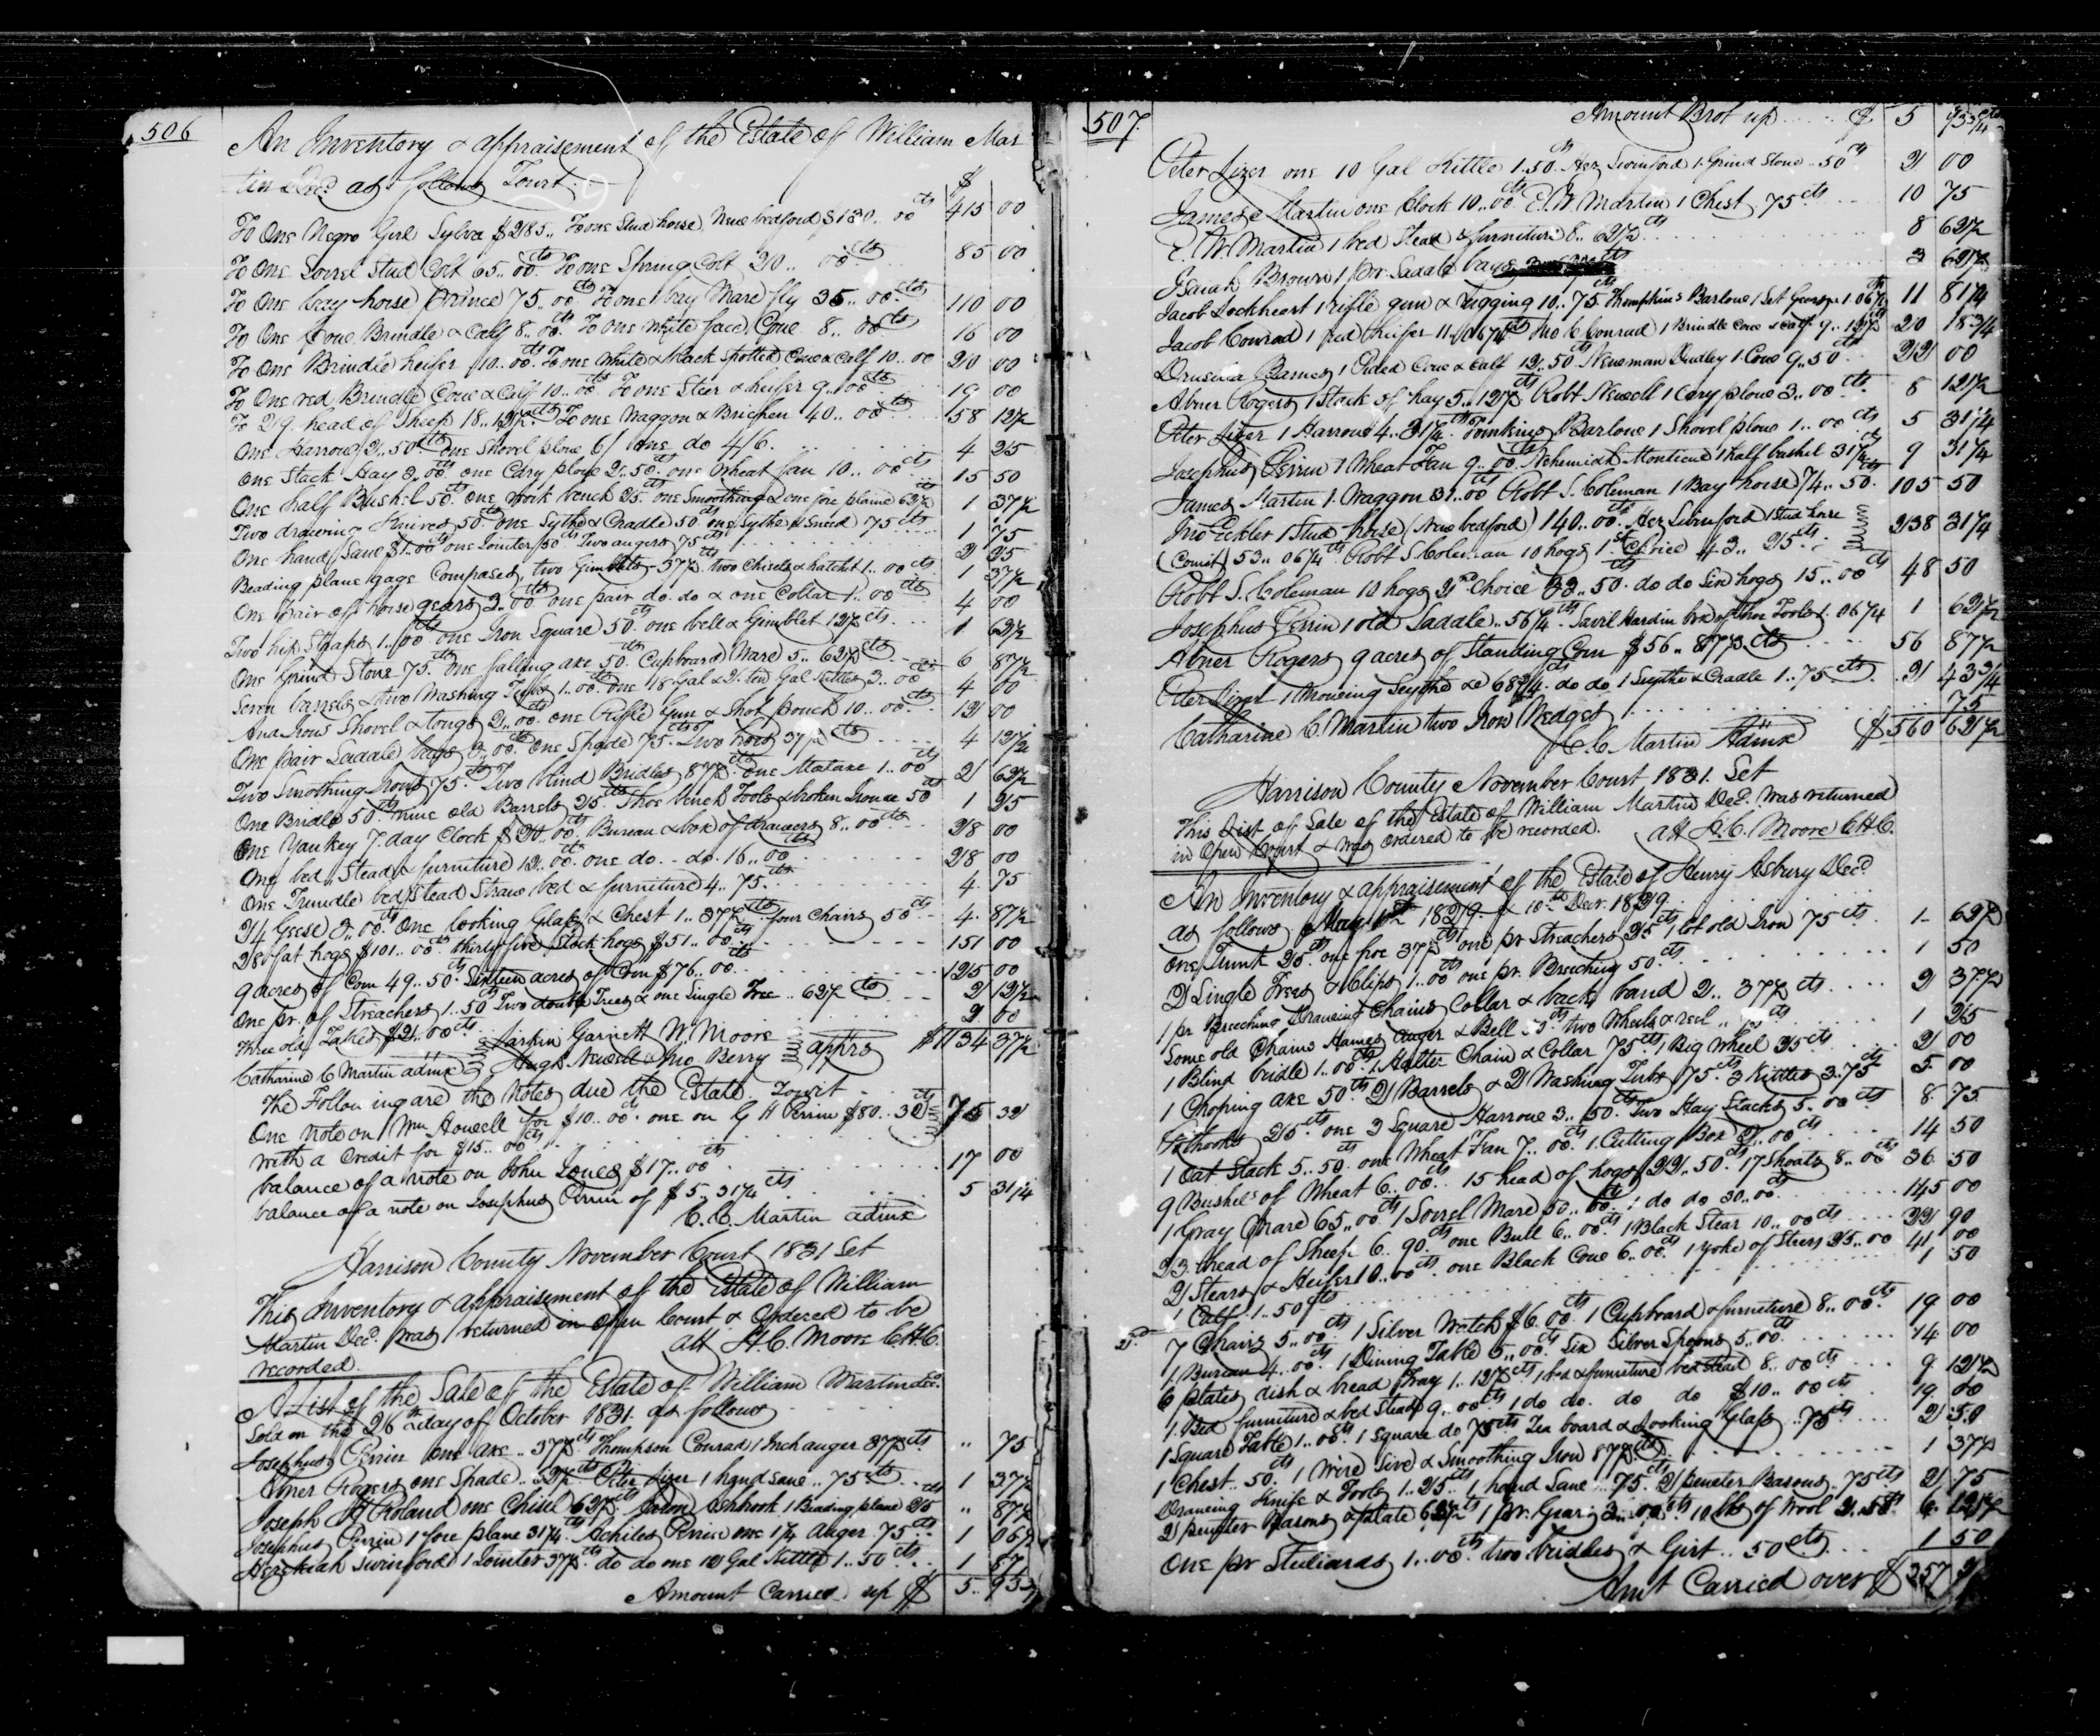 506
An Inventory & appraisement of the Estate of William Mar
tin Decd as follows Towit $
To One Negro Girl Sylva $285.. To one Stud horse Newbedford $130.. 00 cts 415 00
To One Sorrel Stud Colt 65.. 00 cts To one Spring Colt 20.. 00 cts 85 00
To One bay horse Prince 75.. 00 cts To one bay Mare fly 35.. 00 cts 110 00
To One Cow Brindle & Calf 8.. 00 cts To one white face Cow 8.. 00 cts 16 00
To One Brindle heifer 10.. 00 cts To one white & black spotted Cow & Calf 10.. 00 20 00
To One red Brindle Cow & Calf 10.. 00 cts To one Steer & heifer 9.. 00 cts 19 00
To 29 head of Sheep 18.. 12½ cts To one Waggon & Brichen 40.. 00 cts 58 12½
One Harrow 2.. 50 cts One Shovel plow 6/ 1 one do 4/6. 4 25
One Stack Hay 3.. 00 cts one Cary plow 2.. 50 cts one Wheat fan 10.. 00 cts 15 50
One half Bushel 50 cts one work bench 25 cts one Smoothing & one fore plaine 62½ 1 37½
Two drawing Knives 50 cts one Sythe & Cradle 50 cts one Sythe & Sneed 75 cts 1 75
One hand Saw $1.. 00 cts one Jointer 50 cts Two augers 75 cts 2 25
Beading plane gage Composs, two Gimblets 37½ cts two chisels & hatchet 1.. 00 cts 1 37½
One pair of horse gears 3.. 00 cts one pair do. do & one Collar 1.. 00 cts 4 00
Two hip Straps 1.. 00 cts one Iron Square 50 cts one bell & Gimblet 12½ cts 1 62½
One Grind Stone 75 cts One falling axe 50 cts Cupboard Ware 5.. 62½ cts 6 87½
Seven barrels & two Washing Tubs 1.. 00 cts one 18 Gal & 2 ten Gal Kittles 3.. 00 cts 4 00
And Irons Shovel & tongs 2.. 00 cts one Rifle Gun & Shot pouch 10.. 00 cts 12 00
One pair Saddle bags 3.. 00 cts One Spade 75 cts Two hoes 37½ cts 4 12½
Two Smothing Irons 75 cts Two blind Bridles 87½ cts one Mataxe 1.. 00 cts 2 62½
One Bridle 50 cts nine old Barrels 25 cts Shoe bench Tools & broken Iron &c 50 cts 1 25
One Yankey 7. day Clock $20.. 00 cts Bureau & box of drawers 8.. 00 cts 28 00
One bed, Stead & furniture 12.. 00 cts one do.. do. 16.. 00 28 00
One Trundle bed stead Straw bed & furniture 4.. 75 cts 4. 75
24 Geese 3.. 00 cts One looking Glass & Chest 1.. 37½ cts four Chairs 50 cts 4. 87½
28 fat hogs $101.. 00 cts thirty five Stock hogs $51.. 00 cts 151 00
9 acres of Corn 49.. 50 cts Sixteen acres of Corn $76.. 00 cts 125 00
One pr. of Streachers 1.. 50 cts Two double Trees & one Single Tree.. 62½ cts 2 12½
Three old Tables $2.. 00 cts 2 00
Catharine C Martin admx Larkin Garnett W. Moore
Hugh Newell Jno Berry apprs $1134 37½
The Following are the Notes due the Estate Towit
One note on Wm Howell for $10.. 00 cts one on G H Perrin $80.. 32 cts
with a Credit for $15.. 00 cts 75 32
balance of a note on John Jones $17.. 00 cts 17 00
balance of a note on Josephus Perrin of $5.. 31¼ cts 5 31¼
C. C. Martin admx
Harrison County November Court 1831 Set
This Inventory & appraisement of the Estate of William
Martin Decd was returned in Open Court & Ordered to be
recorded. att H. C. Moore C.H.C.
A List of the Sale of the Estate of William Martin decd
Sold on the 26th day of October 1831. as follows
Josephus Perrin one axe.. 37½ cts Thompson Conrad 1 Inch auger 37½ cts " 75
Abner Rogers one Spade.. 62½ cts Peter Lizer 1 hand saw.. 75 cts 1 37½
Joseph H Roland one Chisel 62½ cts Ashbrook 1 Beading plane 25 cts " 87½
Josephus Perrin 1 fore plane 31¼ cts Achiles Perrin one 1¼ Auger 75 cts 1 06¼
Hezekiah Swinford 1 Jointer 37½ cts do do one 10 Gal Kittle 1.. 50 cts 1 87½
Amount Carried up $ 5.. 93¾
507
Amount Brot up $ 5 93¾
Peter Lizer one 10 Gal Kittle 1.50 cts Hez Swinford 1 Grind Stone.. 50 cts 2 00
James Martin one Clock 10.. 00 cts E. W. Martin 1 Chest 75 cts 10 75
E. W. Martin 1 bed Stead & furniture 8.. 62½ cts 8 62½
Isaiah Brown 1 pr. Saddle bags 3 62½
Jacob Lockheart 1 Rifle gun & rigging 10.. 75 cts Thompkins Barlow 1 Set Gears 1.06¼ 11 81¼
Jacob Conrad 1 red heifer 11.. 06¼ cts Jno C Conrad 1 Brindle Cow & Calf 9.. 12½ 20 18¾
Drusilla Barnes 1 Pided Cow & Calf 12.. 50 cts Newman Dudley 1 Cow 9.. 50 cts 22 00
Abner Rogers 1 Stack of hay 5.. 12½ cts Robt Newell 1 Cary plow 3.. 00 cts 8 12½
Peter Lizer 1 Harrow 4.. 31¼ cts Tomkins Barlow 1 Shovel plow 1.. 00 cts 5 31¼
Josephus Perrin 1 Wheat Fan 9.. 00 cts Nehemiah Monticue 1 half bushel 31¼ cts 9 31¼
James Martin 1. Waggon 31.. 00 cts Robt S. Coleman 1 Bay horse 74.. 50 105 50
Jno Eckler 1 Stud horse (New bedford) 140.. 00 cts Hez Swinford 1 Stud horse
(Comit) 53.. 06¼ cts Robt S. Coleman 10 hogs 1st Choice 43.. 25 cts 238 31¼
Robt S. Coleman 10 hogs 2nd Choice 33.. 50 do do Six hogs 15.. 00 cts 48 50
Josephus Perrin 1 old Saddle.. 56¼ cts Savil Hardin box of Shoe Tools 1. 06¼ 1 62½
Abner Rogers 9 acres of Standing Corn $56.. 87½ cts 56 87½
Peter Lizer 1 mowing Scythe &c 68¾ cts do do 1 Scythe & Cradle 1.. 75 cts 2 43¾
Catharine C Martin two Iron Wedges 75
C. C. Martin Admx $560 62½
Harrison County November Court 1831. Set
This List of Sale of the Estate of William Martin Decd was returned
in Open Court & was ordered to be recorded. att H. C. Moore C.H.C.
An Inventory & appraisement of the Estate of Henry Asbury Decd
as follows 10th Decr. 1829
One Trunk 25 cts one hoe 37½ cts one pr Streachers 25 cts 1 lot old Iron 75 cts 1 62½
2 Single Trees & Clips 1.. 00 cts one pr. Breeching 50 cts 1 50
1 pr Breeching Drawing Chains Collar & back band 2.. 37½ cts 2 37½
Some old Chains Hames auger & Bell cts two Wheels & reel.. cts 1 25
1 Blind bridle 1.. 00 cts 1 Halter Chain & Collar 75 cts 1 Big Wheel 25 cts 2 00
1 Choping axe 50 cts 2 Barrels & 2 Washing Tubs 75 cts 3 Kittles 3.75 cts 5. 00
Pothooks 25 cts one 3 Square Harrow 3.. 50 cts Two Hay Stacks 5.. 00 cts 8 75
1 Oat Stack 5.. 50 cts one Wheat Fan 7.. 00 cts 1 Cutting Box 2.. 00 cts 14 50
9 Bushels of Wheat 6.. 00 cts 15 head of hogs 22.. 50 cts 17 Shoats 8.. 00 cts 36 50
1 Gray Mare 65.. 00 cts 1 Sorrel Mare 50.. 00 cts 1 do do 30.. 00 cts 145 00
23 head of Sheep 6.. 90 cts one Bull 6.. 00 cts 1 Black Stear 10.. 00 cts 22 90
2 Stears & Heifer 10.. 00 cts one Black Cow 6.. 00 cts 1 Yoke of Steers 25.. 00 41 00
1 Calf 1.. 50 cts 1 50
7 Chairs 5.. 00 cts 1 Silver Watch $6. 00 cts 1 Cupboard & furniture 8.. 00 cts 19 00
1 Bureau 4.. 00 cts 1 Dining Table 5.. 00 cts Six Silver Spoons 5.. 00 cts 14 00
6 plates dish & bread tray 1.. 12½ cts 1 bed & furniture bedstead 8.. 00 cts 9 12½
1 Bed furniture & bed Stead 9.. 00 cts 1 do do. do do $10.. 00 cts 19 00
1 Square Table 1.. 00 cts 1 Square do 75 cts Tea board & Looking Glass.. 75 cts 2 50
1 Chest.. 50 cts 1 Wire Sive & Smoothing Iron 87½ cts 1 37½
Drawing Knife & Tools 1.. 25 cts 1 hand Saw.. 75 cts 2 pewter Basons.. 75 cts 2 75
2 pewter Basons & plate 62½ cts 1 pr. Gears 3.. 00 cts 10 lbs of Wool 2.50 cts 6 12½
One pr Stiliards 1.. 00 cts two bridles & Girt.. 50 cts 1 50
Amt Carried over $357